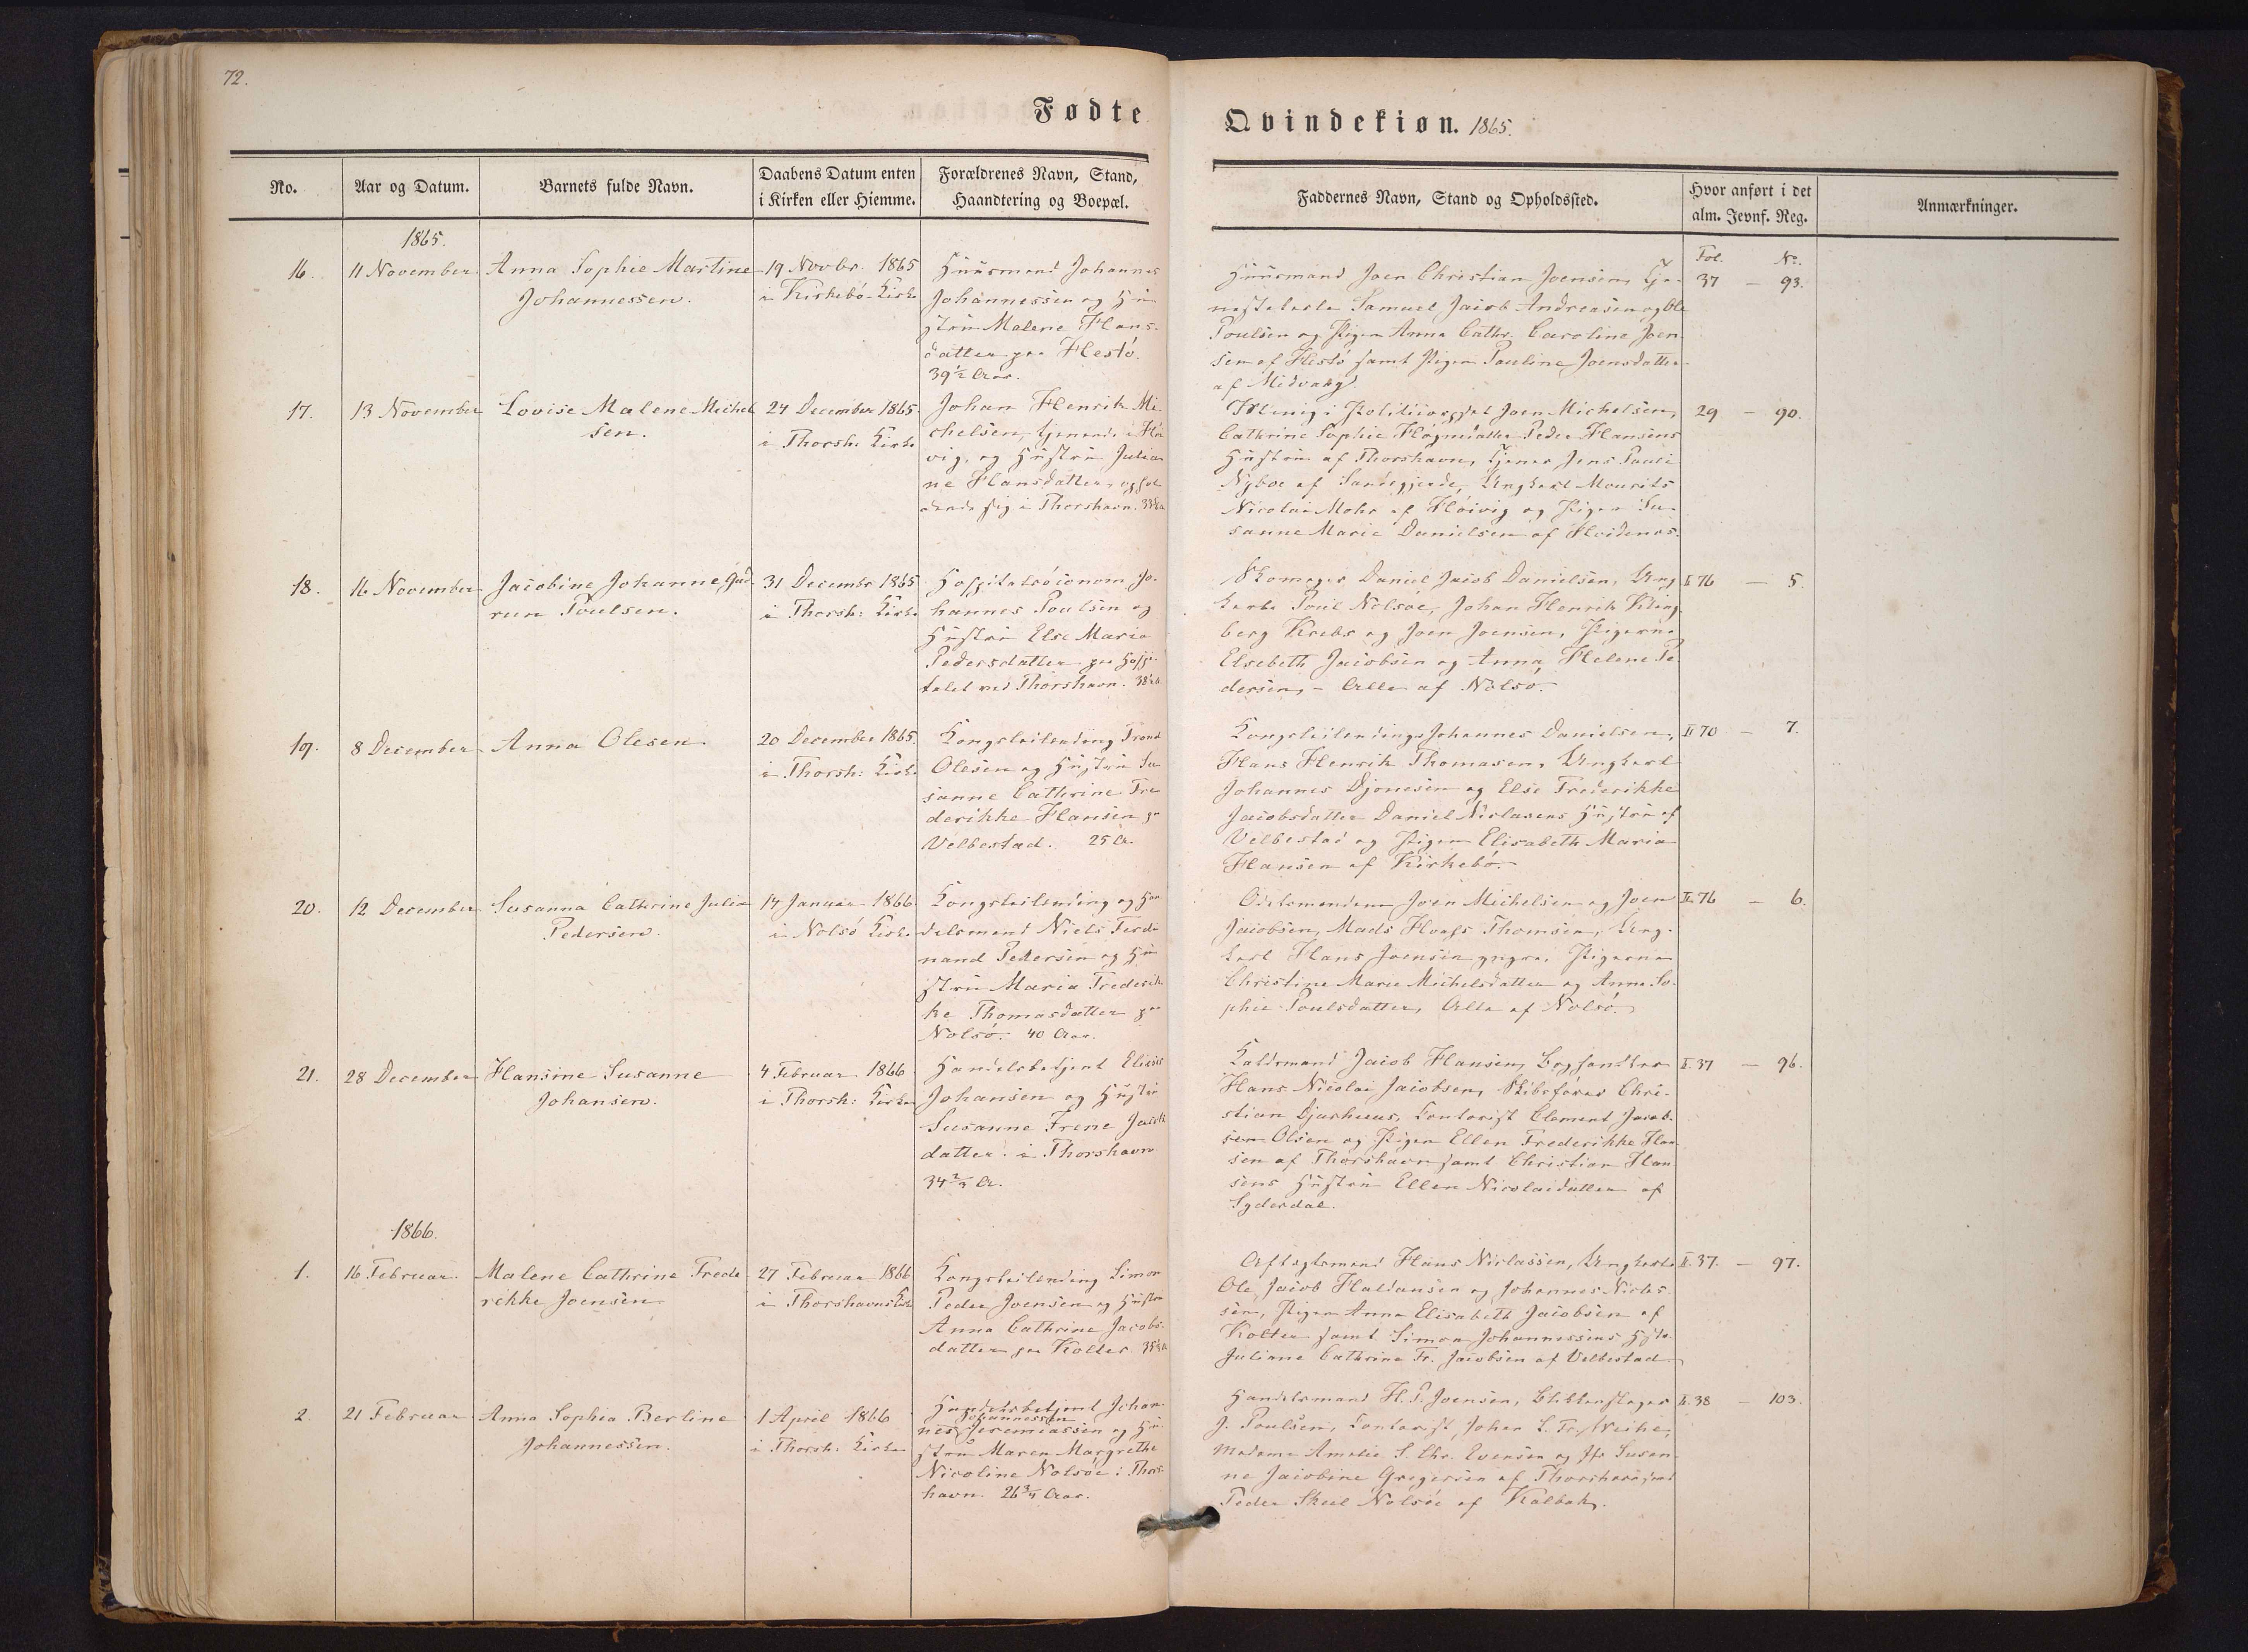 72.
Fødte
Qvindekiøn. 1865.
No.
Aar og Datum.
Barnets fulde Navn.
Daabens Datum enten
i Kirken eller Hiemme.
Forældrenes Navn, Stand,
Haandtering og Boepæl.
Faddernes Navn, Stand og Opholdssted.
Hvor anført i det
alm. Jevnf. Reg.
Anmærkninger.
1865.
16.
11 November
Anna Sophie Martine
Johannessen.
19 Novbr. 1865
i Kirkebø Kirke
Huusmand Johannes
Johannessen og Hu-
stru Malene Hans-
datter paa Hestø.
39 1/2 Aar.
Huusmand Joen Christian Joensen, Tje-
Samuel Jacob Andreasen og Ole
Poulsen og Pigen Anna Cathr. Caroline Joen-
sen af Hestø samt Pigen Pauline Joensdatter
af Midvaag.
Fol. No.
37 - 93.
17.
13 November
Lovise Malene Michel
sen.
24 December 1865.
i Thorsh. Kirke
Johan Henrik Mi-
chelsen, tjenende i
vig, og Hustru Julia-
ne Hansdatter, ophol-
dende sig i Thorshavn.
Joen Michelsen,
Cathrine Sophie Peder Hansens
Hustru af Thorshavn, Tjener Jens Pauli
Nyboe af Sandegjerde, Ungkarl Mourits
Nicolai Mohr af Høivig og Pigen Su-
sanne Marie Danielsen af
29 - 90.
18.
16 November
Jacobine Johanne Gud
run Poulsen.
31 Decembr 1865
i Thorsh: Kirke
Hospitalsøconom Jo-
hannes Poulsen og
Hustru Else Maria
Pedersdatter paa Hospi-
talet ved Thorshavn.
Skomager Daniel Jacob Danielsen, Ung
karle Poul Nolsøe, Johan Henrik Kling-
berg Krebs og Joen Joensen, Pigerne
Elsebeth Jacobsen og Anna Helene Pe-
dersen, - Alle af Nolsø.
II 76 - 5.
19.
8 December
Anna Olesen
20 December 1865.
i Thorsh: Kirke
Kongsleilending Trond
Olesen og Hustru Su
sanne Cathrine Fre
derikke Hansen paa
Velbestad. 25 A.
Kongsleilending Johannes Danielsen,
Hans Henrik Thomasen, Ungkarl
Johannes Djonesen og Else Frederikke
Jacobsdatter Daniel Niclasens Hustru af
Velbestad og Pigen Elisabeth Maria
Hansen af Kirkebø.
II 70 - 7.
20.
12 December
Susanna Cathrine Julia
Pedersen.
14 Januar 1866.
i Nolsø Kirke
Kongsleilending og Han
delsmand Niels Ferdi
nand Pedersen og Hu
stru Maria Frederik
ke Thomasdatter paa
Nolsø. 40 Aar.
Odelsmændene Joen Michelsen og Joen
Jacobsen, Mads Thomsen, Ung-
karl Hans Joensen yngre, Pigerne
Christine Marie Michelsdatter og Anna So-
phie Poulsdatter, Alle af Nolsø.
II 76 - 6.
21.
28 December
Hansine Susanne
Johansen.
4 Februar 1866
i Thorsh: Kirke
Handelsbetjent
Johansen og Hustru
Susanne Irene Jacobs
datter i Thorshavn
34 2/3 A.
Jacob Hansen,
Hans Nicolai Jacobsen, Skibsfører Chri-
stian Djurhuus, Contorist Clement Jacob-
sen Olsen og Pigen Ellen Frederikke Han
sen af Thorshavn samt Christian Han
sens Hustru Ellen Nicolaidatter af
Syderdal.
II. 37 - 96.
1866.
1.
16 Februar.
Malene Cathrine Frede
rikke Joensen.
27 Februar 1866
i Thorshavns Kirke
Kongsleilending Simon
Peder Joensen og Hustru
Anna Cathrine Jacobs-
datter paa Kolter
Aftægtsmand Hans Niclassen, Ungkarle
Ole Jacob Haldansen og Johannes Niclas-
sen, Pigen Anna Elisabeth Jacobsen af
Kolter samt Simon Johannessens
Juliane Cathrine Fr. Jacobsen af Velbestad
II. 37. - 97.
2.
21 Februar
Anna Sophia Berline
Johannessen.
1 April 1866
i Thorsh. Kirke
Handelsbetjent Johan-
Johannessen
nes Jeremiassen og Hu-
stru Maren Margrethe
Nicoline Nolsøe i Thors-
havn. 26 3/4 Aar.
Handelsmand H. P. Joensen, Blikkenslager
J. Poulsen, Contorist Johan L. Fr. Weihe,
Madame Amalie S. Chr. Evensen og Jfr Susan-
ne Jacobine Gregersen af Thorshavn samt
Peder Skeel Nolsøe af Kalbak.
II. 38 - 103.